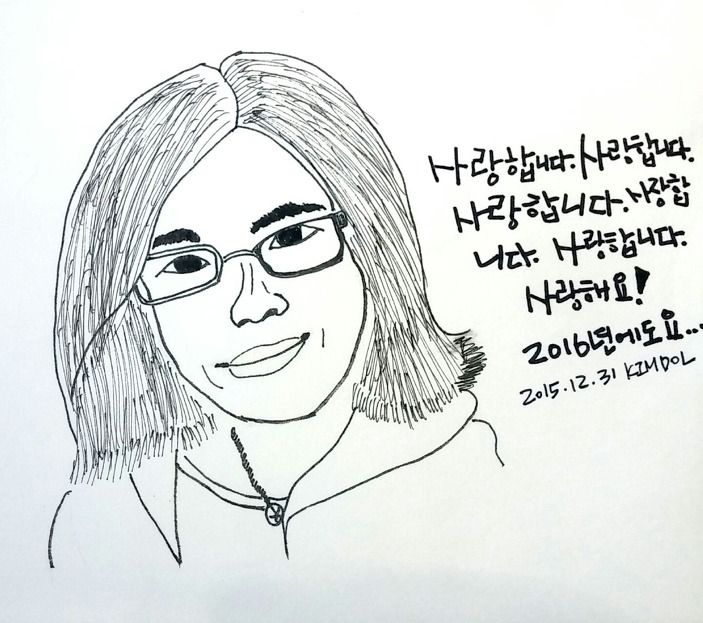 사랑합니다. 사랑합니다.
사랑합니다. 사랑합
니다. 사랑합니다.
사랑해요!
2016년에도요...
2015.12.31 KIMDOL